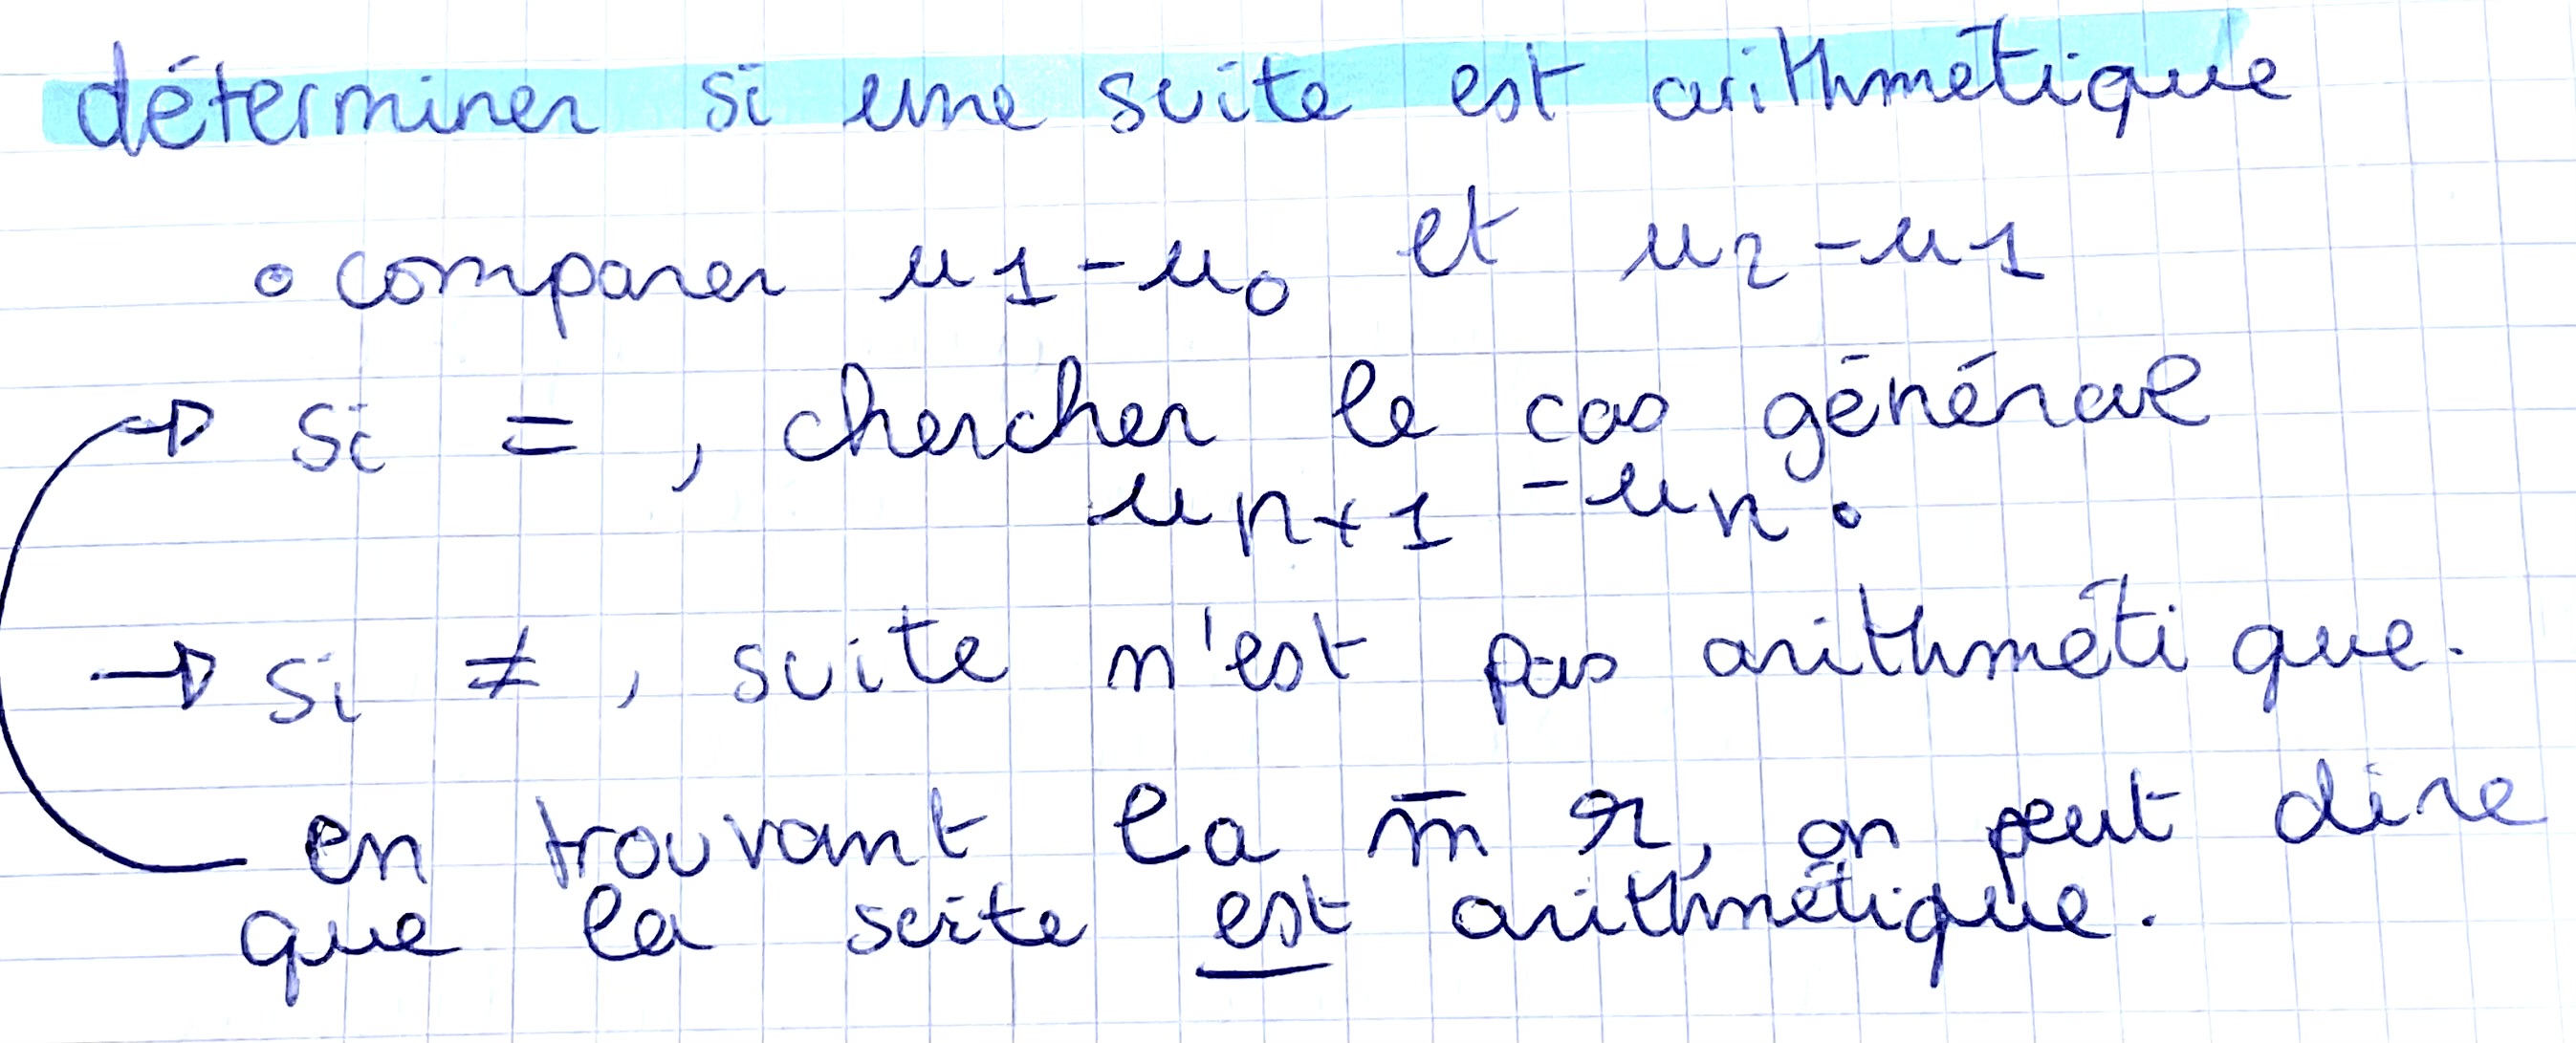 déterminer si une suite est arithmétique
• comparer u1 - u0 et u2 - u1
→ si = , chercher le cas général
un+1 - un.
→ si ≠ , suite n'est pas arithmétique.
en trouvant la m̄ r, on peut dire
que la suite est arithmétique.